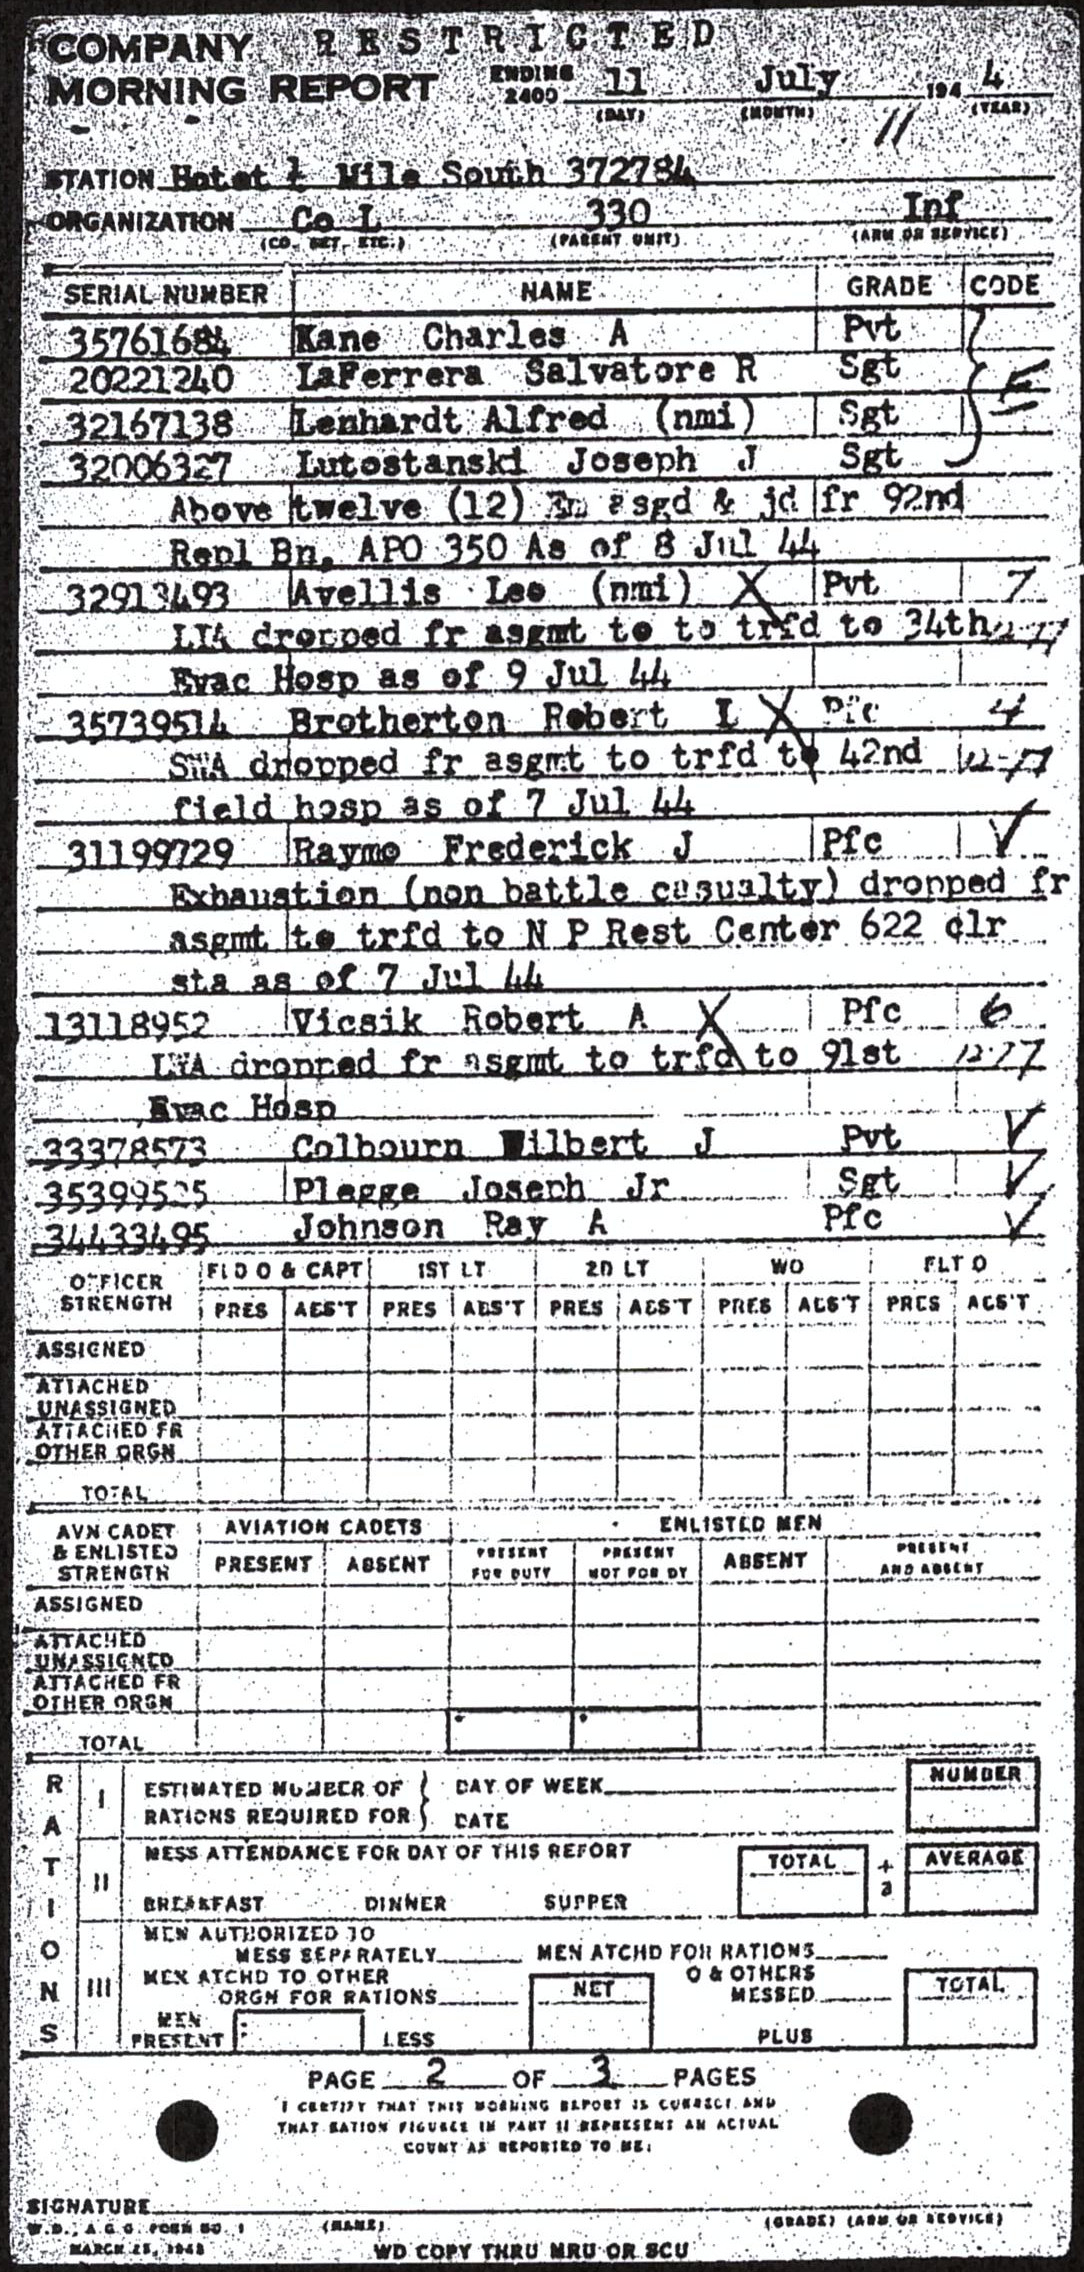 COMPANY RESTRICTED
MORNING REPORT ENDING 2400 11 July 194 4
(DAY) (MONTH) (YEAR)
11
STATION Hotot ½ Mile South 372784
ORGANIZATION Co L 330 Inf
(CO. DET. ETC.) (PARENT UNIT) (ARM OR SERVICE)
SERIAL NUMBER NAME GRADE CODE
35761684 Kane Charles A Pvt
20221240 LaFerrera Salvatore R Sgt E
32167138 Lenhardt Alfred (nmi) Sgt
32006327 Lutostanski Joseph J Sgt
Above twelve (12) Em asgd & jd fr 92nd
Repl Bn, APO 350 As of 8 Jul 44
32913493 Avellis Leo (nmi) X Pvt 7
LIA dropped fr asgmt to to trfd to 34th 12-77
Evac Hosp as of 9 Jul 44
35739514 Brotherton Robert L X Pfc 4
SWA dropped fr asgmt to trfd to 42nd 12-77
field hosp as of 7 Jul 44
31199729 Raymo Frederick J Pfc ✓
Exhaustion (non battle casualty) dropped fr
asgmt to trfd to N P Rest Center 622 clr
sta as of 7 Jul 44
13118952 Vicsik Robert A X Pfc 6
LWA dropped fr asgmt to trfd to 91st 12-77
Evac Hosp
33378573 Colbourn Wilbert J Pvt ✓
35399535 Plegge Joseph Jr Sgt ✓
34433495 Johnson Ray A Pfc ✓
OFFICER STRENGTH FLD O & CAPT 1ST LT 2D LT WO FLT O
PRES ABS'T PRES ABS'T PRES ABS'T PRES ABS'T PRES ABS'T
ASSIGNED
ATTACHED
UNASSIGNED
ATTACHED FR
OTHER ORGN
TOTAL
AVN CADET & ENLISTED STRENGTH AVIATION CADETS ENLISTED MEN
PRESENT ABSENT PRESENT FOR DUTY PRESENT NOT FOR DY ABSENT PRESENT AND ABSENT
ASSIGNED
ATTACHED
UNASSIGNED
ATTACHED FR
OTHER ORGN
TOTAL
RATIONS
I ESTIMATED NUMBER OF DAY OF WEEK NUMBER
RATIONS REQUIRED FOR DATE
II MESS ATTENDANCE FOR DAY OF THIS REPORT TOTAL ÷ 3 AVERAGE
BREAKFAST DINNER SUPPER
III MEN AUTHORIZED TO
MESS SEPARATELY MEN ATCHD FOR RATIONS
MEN ATCHD TO OTHER O & OTHERS
ORGN FOR RATIONS NET MESSED TOTAL
MEN PRESENT LESS PLUS
PAGE 2 OF 3 PAGES
I CERTIFY THAT THIS MORNING REPORT IS CORRECT AND
THAT RATION FIGURES IN PART II REPRESENT AN ACTUAL
COUNT AS REPORTED TO ME:
SIGNATURE
W.D., A.G.O. FORM NO. 1 (NAME) (GRADE) (ARM OR SERVICE)
MARCH 25, 1943
WD COPY THRU MRU OR SCU